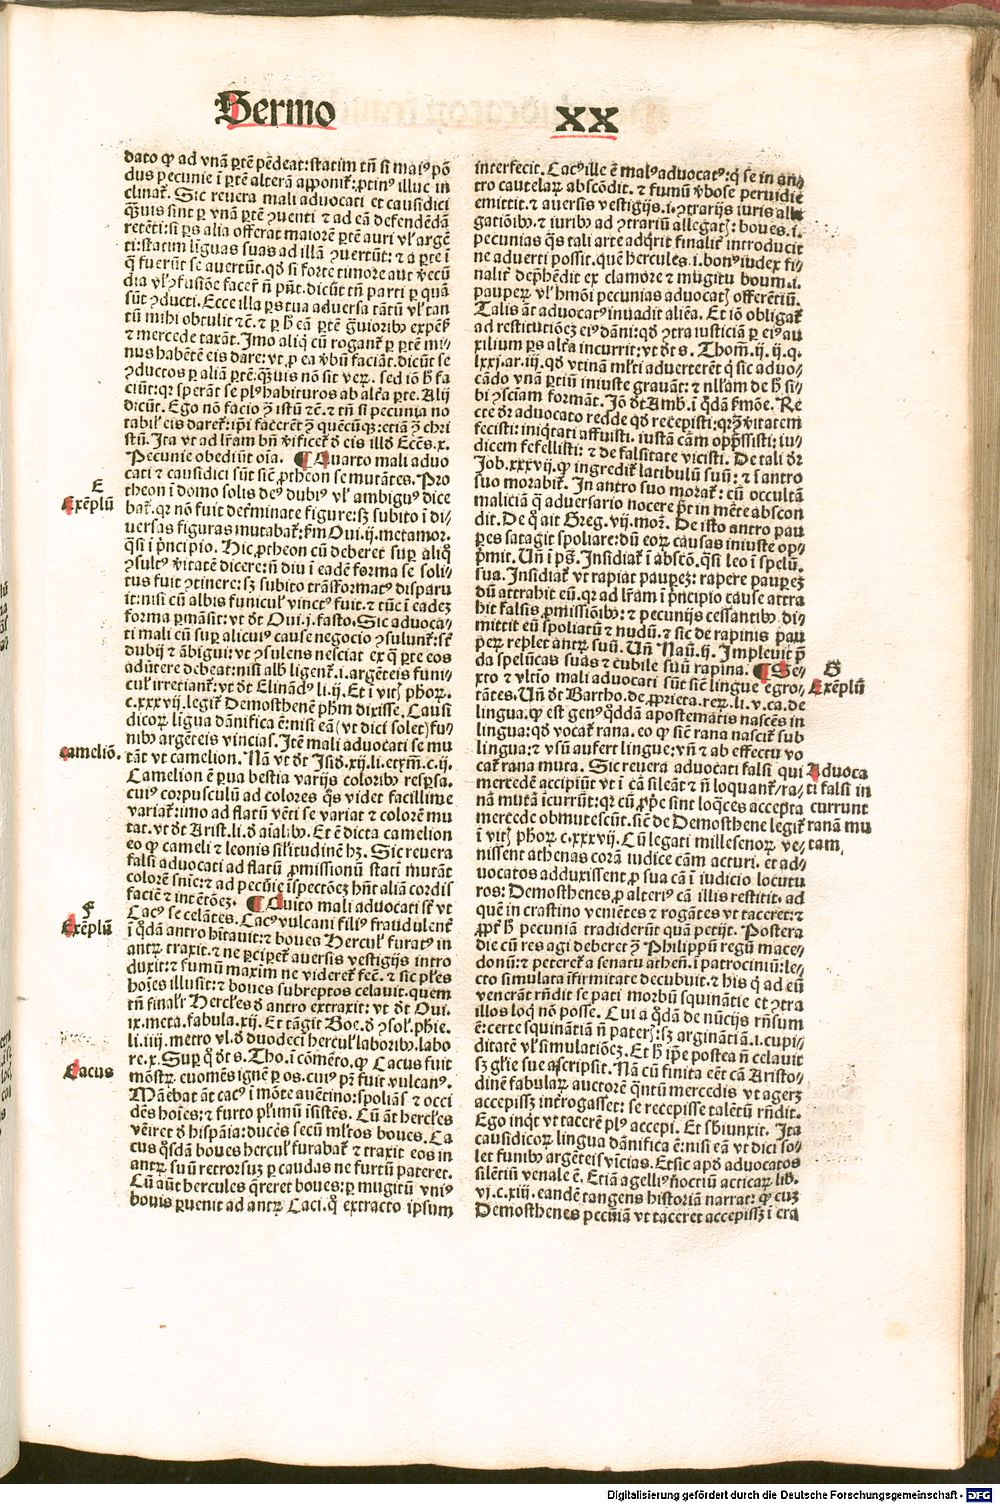 Sermo XX
dato ꝙ ad vnā ꝑtē pēdeat: statim tñ si maiꝰ pō
dus pecunie ī ꝑtē alterā apponit᷑: ꝓtinꝰ illuc in
clinat᷑. Sic reuera mali aduocati et causidici
q̄uis sint ꝑ vnā ꝑtē ꝯuenti ⁊ ad eā defendēdā
retēti: si ꝑs alia offerat maiorē ꝑtē auri vl̓ argē
ti: statim linguas suas ad illā ꝯuertūt: ⁊ a ꝑte ī
q̄ fuerūt se auertūt. qd̓ si forte timore aut verecū
dia vl̓ ꝯfusiōe facer̄ n̄ pn̄t. dicūt tn̄ parti ꝑ quā
sūt ꝯducti. Ecce illa ꝑs tua aduersa tātū vl̓ tan
tū mihi obtulit ⁊c̄. ⁊ ꝑ hͨ eā ꝑtē grauiorībꝫ expēs̄
⁊ mercede taxāt. Imo aliq̄ cū rogant᷑ ꝑ ꝑtē mi-
nus habētē eis dare: vt ꝓ ea v̓bū faciāt. dicūt se
ꝯductos ꝑ aliā ꝑtē: q̄uis nō sit veꝝ. sed iō hͨ fa
ciūt: qꝛ sperāt se plꝰ habituros ab alťa ꝑte. Alij
dicūt. Ego nō facio ꝯ istū ⁊c̄. ⁊ tn̄ si pecunia no
tabil̓ eis daret᷑: ip̄i facerēt ꝯ quēcūqꝫ: etiā ꝯ chri
stū. Ita vt ad lr̄am bn̄ v̓ificet᷑ d̓ eis illd̓ Ecc̄s. x.
Pecunie obediūt oīa. ¶ Quarto mali aduo
cati ⁊ causidici sūt sic̄ ꝓtheon se mutātes. Pro
theon ī domo solis deꝰ dubiꝰ vl̓ ambigiꝰ dice
bat᷑. qꝛ nō fuit det̓minate figure: sꝫ subito ī di-
uersas figuras mutabat᷑: ẜm Oui. ij. metamor.
q̄si ī pͥncipio. Hic ꝓtheon cū deberet suꝑ aliq̄
ꝯsultꝰ v̓itatē dicere: n̄ diu ī eadē forma se soli-
tus fuit ꝯtinere: sꝫ subito trāsformatꝰ disparu
it: nisi cū albis funicul̓ vinctꝰ fuit. ⁊ tūc ī eadeꝫ
forma ꝑmāsit: vt dͭ Oui. j. fasto. Sic aduoca-
ti mali cū suꝑ alicuiꝰ cause negocio ꝯsulunt᷑: sūt
dubij ⁊ ābigui: vt ꝯsulens nesciat ex q̄ ꝑte eos
aduertere debeat: nisi alb̓ ligent᷑. i. argēteis funi-
cul̓ irretiant᷑: vt dͭ Elinādꝰ li. ij. Et ī vit̓ phoꝝ.
c. xxxvij. legit᷑ Demosthenē phm̄ dixisse. Causi
dicoꝝ līgua dānifica ē: nisi eā (vt dici solet) fu-
nibꝫ argēteis vincias. Itē mali aduocati se mu
tāt vt camelion. Nā vt dͭ Isid̓. xij. li. etxm̄. c. ij.
Camelion ē ꝑua bestia varijs coloribꝫ resꝑsa.
cuiꝰ corpusculū ad colores q̄s videt facillime
variat᷑: imo ad flatū vēti se variat ⁊ colorē mu
tat. vt dͭ Arist. li. d̓ aīalibꝫ. Et ē dicta camelion
eo ꝙ cameli ⁊ leonis sil̓itudinē hꝫ. Sic reuera
falsi aduocati ad flatū ꝓmissionū statī mutāt
colorē snīe: ⁊ ad pecūie īspectōeꝫ hn̄t aliā cordis
faciē ⁊ intētōeꝫ. ¶ Quīto mali aduocati sūt vt
Cacꝰ se celātes. Cacꝰ vulcani filiꝰ fraudulent᷑
ī q̄dā antro hītauit: ⁊ boues Hercul̓ furatꝰ in
antꝝ traxit. ⁊ ne ꝑciꝑet᷑ auersis vestigijs intro
duxit: ⁊ fumū maxim̄ ne videret᷑ fec̄. ⁊ sic pl̓es
hoīes illusit: ⁊ boues subreptos celauit. quem
tn̄ finalr̄ Hercl̓es d̓ antro extraxit: vt dͭ Oui.
ix. meta. fabula. xij. Et tāgit Boe. d̓ ꝯsol̓. phie.
li. iiij. metro vl. d̓ duodeci hercul̓ laboribꝫ. labo
re. x. Suꝑ q̄ dͭ s. Tho. ī cōmēto. ꝙ Cacus fuit
mōstꝝ. euomēs ignē ꝑ os. cuiꝰ pr̄ fuit vulcanꝰ.
Manēbat āt cacꝰ ī mōte auētino: spoliās ⁊ occi
dēs hoīes: ⁊ furto pl̓imū īsistēs. Cū āt hercl̓es
vēiret d̓ hispāia: ducēs secū ml̓tos boues. Ca
cus q̄sdā boues hercul̓ furabat᷑ ⁊ traxit eos in
antꝝ suū retrorsuꝫ ꝑ caudas ne furtū pateret.
Cū aūt hercules q̄reret boues: ꝑ mugitū vniꝰ
bouis ꝑuenit ad antꝝ Caci. q̄ extracto ipsum
E
Exēplū
camelio.
F
Exēplū
Cacus
interfecit. Cacꝰ ille ē malꝰ aduocatꝰ: q̄ se in an-
tro cautelaꝝ abscōdit. ⁊ fumū v̓bose ꝑuidie
emittit. ⁊ auersis vestigijs. i. ꝯtrarijs iuris alle
gatiōibꝫ. ⁊ iuribꝫ ad ꝯtrariū allegat̓: boues. i.
pecunias q̄s tali arte adq̄rit finalit᷑ introducit
ne aduerti possit. quē hercules. i. bonꝰ iudex fi-
nalit᷑ dep̄hēdit ex clamore ⁊ mugitu boum. i.
pauꝑeꝝ vl̓ hmōi pecunias aduocat̓ offerētiū.
Talis āt aduocatꝰ inuadit aliēa. Et iō obligat᷑
ad restitutiōeꝫ eiꝰ dāni: qd̓ ꝯtra iusticiā ꝑ eiꝰ au
xilium ꝑs alťa incurrit: vt dͭ s. Thom̄. ij. ij. q.
lxxi. ar. iij. qd̓ vtinā ml̓ti aduerterēt q̓ sic aduo-
cādo vnā ꝑtiū iniuste grauāt: ⁊ nll̓am de hͨ si-
bi ꝯsciam formāt. Iō dͭ Amb. ī q̄dā ẜmōe. Re
cte dr̄ aduocato redde qd̓ recepisti: qꝛ ꝯ v̓itatem
fecisti: iniq̄tati affuisti. iustā cām opp̄ssisti: iu-
dicem fefellisti: ⁊ de falsitate vicisti. De tali dr̄
Job. xxxvij. ꝙ ingredit᷑ latibulū suū: ⁊ ī antro
suo morabit᷑. In antro suo morat᷑: cū occultā
maliciā q̄ aduersario nocere pͭ in mēte abscon
dit. De q̄ ait Greg. vij. mor̄. De isto antro pau
ꝑes satagit spoliare: dū eoꝝ causas iniuste op-
pͥmit. Vn̄ ī ps̄. Insidiat᷑ ī abstō. q̄si leo ī spelū.
sua. Insidiat᷑ vt rapiat pauꝑeꝫ: rapere pauꝑeꝫ
dū attrahit eū. qꝛ ad lr̄am ī pͥncipio cause attra
hit falsis ꝓmissiōibꝫ: ⁊ pecunijs cessantibꝫ di-
mittit eū spoliatū ⁊ nudū. ⁊ sic de rapinis pau
ꝑeꝝ replet antꝝ suū. Vn̄ Naū. ij. Impleuit p̄
da spelūcas suas ⁊ cubile suū rapina. ¶ Se-
xto ⁊ vltīo mali aduocati sūt sic̄ lingue egro-
tātes. Vn̄ dͭ Bartho. de ꝓprieta. reꝝ. li. v. ca. de
lingua. ꝙ est genꝰ q̄ddā apostematis nascēs in
lingua: qd̓ vocat᷑ rana. eo ꝙ sic̄ rana nascit᷑ sub
lingua: ⁊ vsū aufert lingue: vn̄ ⁊ ab effectu vo
cat᷑ rana muta. Sic reuera aduocati falsi qui
mercedē accipiūt vt ī cā sileāt ⁊ n̄ loquant᷑/ ra-
nā mutā īcurrūt: qꝛ cū ꝓpͥe sint loq̄ces accepta
mercede obmutescūt. sic̄ de Demosthene legit᷑
ī vit̓ phoꝝ c. xxxvij. Cū legati millesenoꝝ ve-
nissent athenas corā iudice cām acturi. et ad-
uocatos adduxissent ꝓ sua cā ī iudicio locutu
ros: Demosthenes ꝓ alteriꝰ cā illis restitit. ad
quē in crastino veniētes ⁊ rogātes vt taceret: ⁊
ꝓpt̓ hͨ pecuniā tradiderūt quā petijt. Postera
die cū res agi deberet ꝯ Philippū regū mace-
donū: ⁊ peteret᷑ a senatu athen̄. ī patrociniū: le-
cto simulata īfirmitate decubuit. ⁊ his q̓ ad eū
venerāt rn̄dit se pati morbū squināntie et ꝯtra
illos loq̓ nō posse. Cui a q̄dā de nūcijs rn̄sum
ē: certe squinātiā n̄ pater̄: sꝫ arginātiā. i. cupi-
ditatē vl̓ simulatiōeꝫ. Et hͨ ip̄e postea n̄ celauit
sꝫ gl̓ie sue ascripsit. Nā cū finita eēt cā Aristo-
dinē fabulaꝝ auctorē q̄ntū mercedis vt agerꝫ
accepissꝫ interogasset: se recepisse talētū rn̄dit.
Ego inq̓t vt tacerē plꝰ accepi. Et sb̓iunxit. Ita
causidicoꝝ lingua dānifica ē: nisi eā vt dici so-
let funibꝫ argēteis vīcias. Et sic apd̓ aduocatos
silētiū venale ē. Etiā agelliꝰ n̄octiū acticaꝝ lib.
vi. c. xiii. eandē tangens historiā narrat: ꝙ cuꝫ
Demosthenes pecūiā vt taceret accepissꝫ ī cra
G
Exēplū
Aduoca
ti falsi in
currunt
ranā mu
tam.
Digitalisierung gefördert durch die Deutsche Forschungsgemeinschaft - DFG